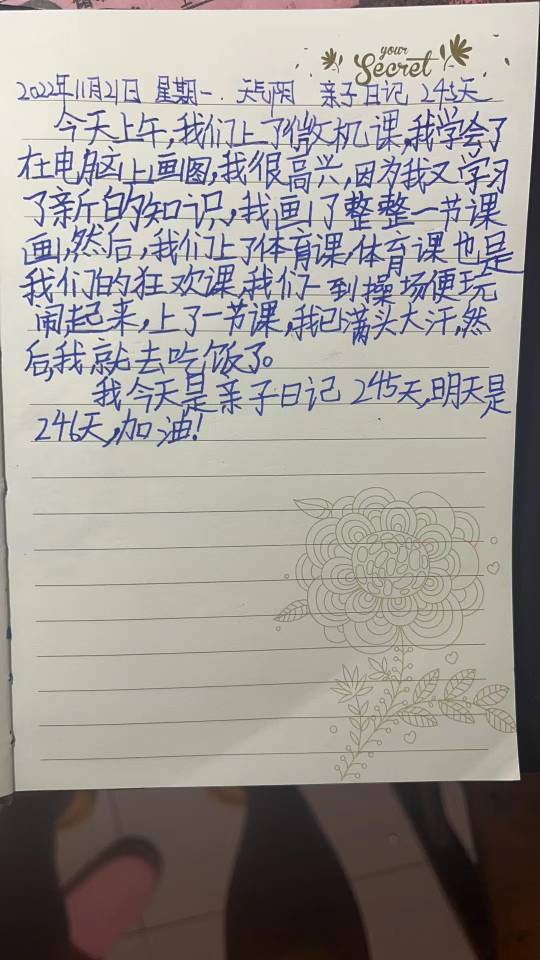 your
Secret
2022年11月21日 星期一. 天气阴 亲子日记 245天
今天上午,我们上了微机课,我学会了
在电脑上画图,我很高兴,因为我又学习
了新的知识,我画了整整一节课
画,然后,我们上了体育课,体育课也是
我们的狂欢课,我们一到操场便玩
闹起来,上了一节课,我已满头大汗,然
后,我就去吃饭了。
我今天是亲子日记245天,明天是
246天,加油!